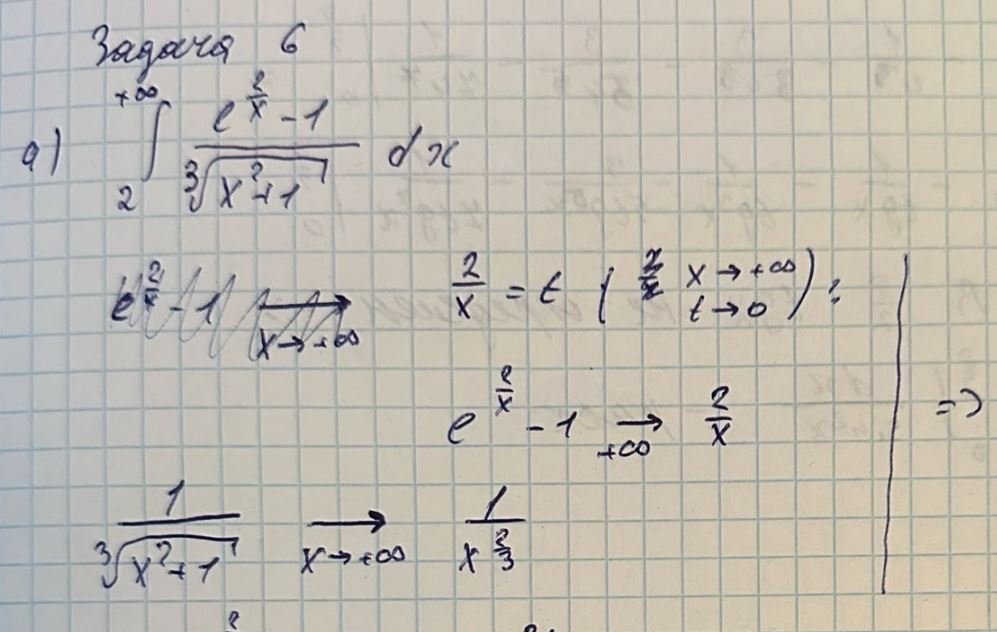 Задача 6
а) ∫_{2}^{+∞} (e^{2/x} - 1)/∛(x²+1) dx
e^{2/x} - 1 →_{x→+∞} 2/x = t ( x→+∞ t→0 ) :
e^{2/x} - 1 →_{+∞} 2/x | =>
1/∛(x²+1) →_{x→+∞} 1/x^{2/3}